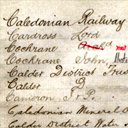 Caledonian Railway
Cardross Lord
Cochrane
Cochrane John
Calder District
Calder
Cameron
Caledonian Mineral
Calder District